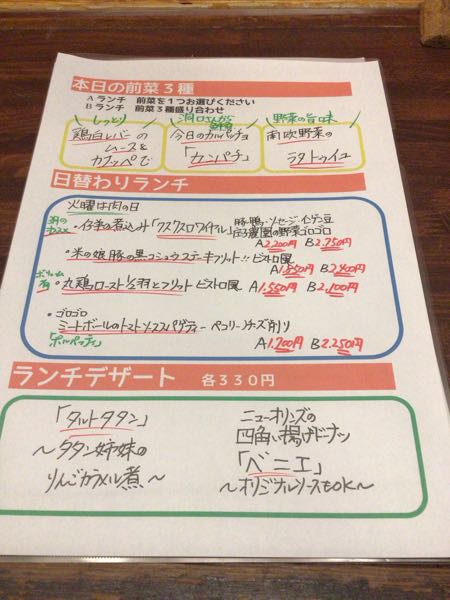 本日の前菜3種
Aランチ 前菜を1つお選びください
Bランチ 前菜3種盛り合わせ
しっとり
鶏白レバーの
ムースを
カナッペで
洞口さんから
今日のカルパッチョ
「カンパチ」
野菜の旨味
南欧野菜の
ラタトゥイユ
日替わりランチ
火曜は肉の日
・仔羊の煮込み「クスクスロワイヤル」豚・鴨・ソーセージ・インゲン豆
農園の野菜ゴロゴロ
A2,200円 B2,750円
・米の娘豚の黒コショウステーキフリット!! ビストロ風
A1,850円 B2,400円
ボリューム有
・丸鶏ロースト1/2羽とフリット ビストロ風 A1,550円 B2,100円
・ゴロゴロ
ミートボールのトマトソーススパゲティー ペコリーノチーズ削り
「ポルペッティ」
A1,700円 B2,250円
ランチデザート 各330円
「タルトタタン」
~タタン姉妹の
りんごカラメル煮~
ニューオリンズの
四角い揚げドーナツ
「ベニエ」
~オリジナルソースもOK~